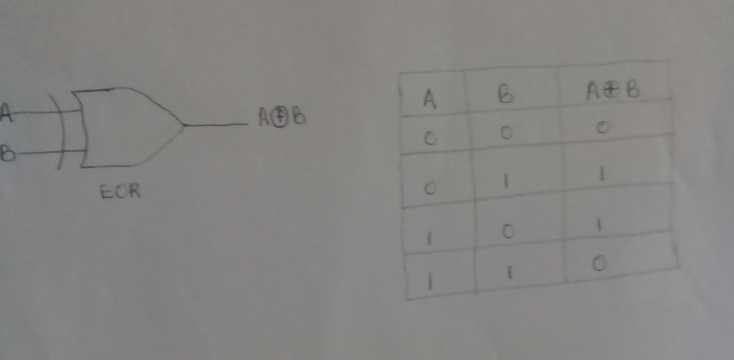 A
B
A⊕B
ECR
A B A⊕B
0 0 0
0 1 1
1 0 1
1 1 0